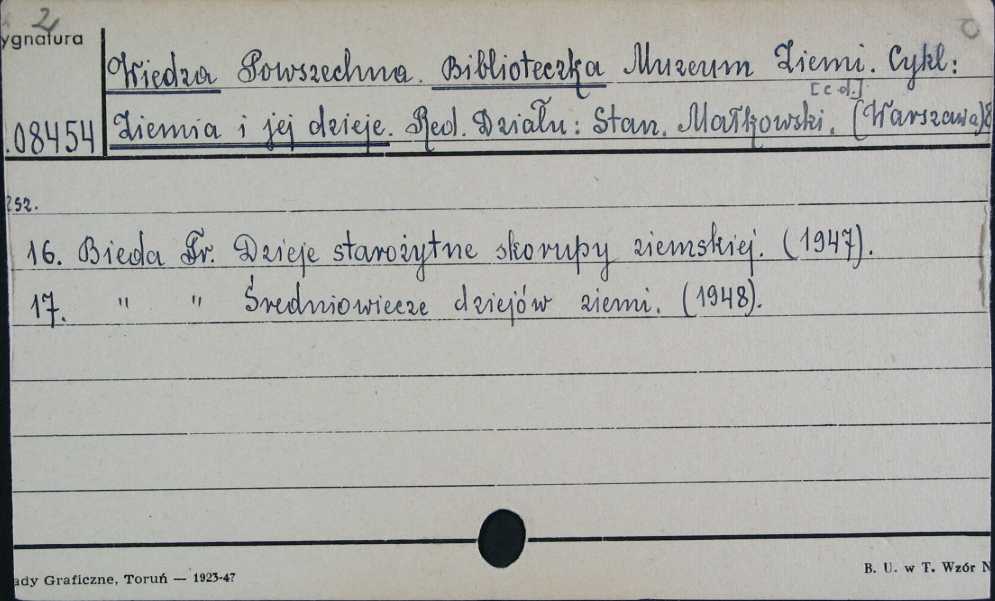 2
ygnatura
Wiedza Powszechna. Biblioteczka Muzeum Ziemi. Cykl:
[c d.]
.08454 Ziemia i jej dzieje. Red. Działu: Stan. Małkowski. (Warszawa)8
zsz.
16. Bieda Fr. Dzieje starożytne skorupy ziemskiej. (1947).
17. " " Średniowiecze dziejów ziemi. (1948).
ady Graficzne, Toruń — 1923-47
B. U. w T. Wzór N